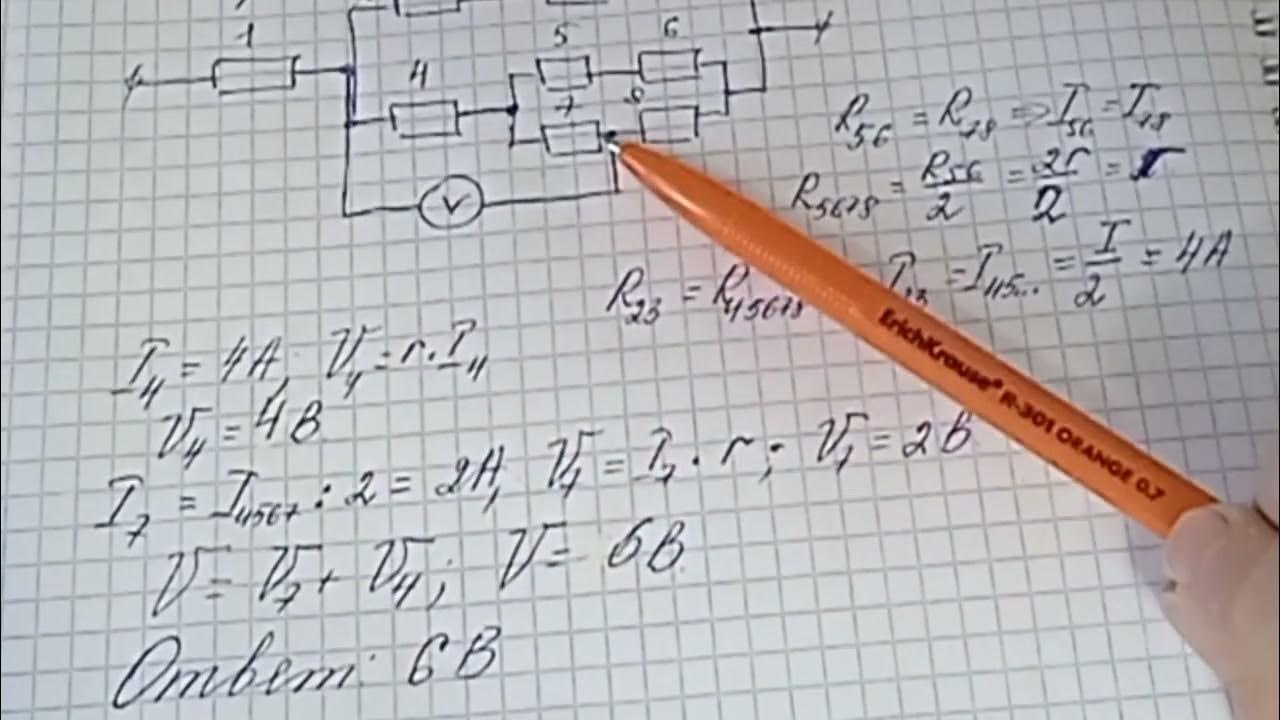 1
4
5
6
7
8
V
R₅₆ = R₇₈ => I₅₆ = I₇₈
R₅₆₇₈ = R₅₆/2 = 2r/2 = r
R₂₃ = R₄₅₆₇₈
= I₄₅... = I/2 = 4A
I₄ = 4A, V₄ = r·I₄
V₄ = 4В
I₇ = I₄₅₆₇ : 2 = 2A, V₇ = I₇ · r; V₇ = 2В
V = V₇ + V₄; V = 6В
Ответ: 6В
ErichKrause® R-301 ORANGE 0.7